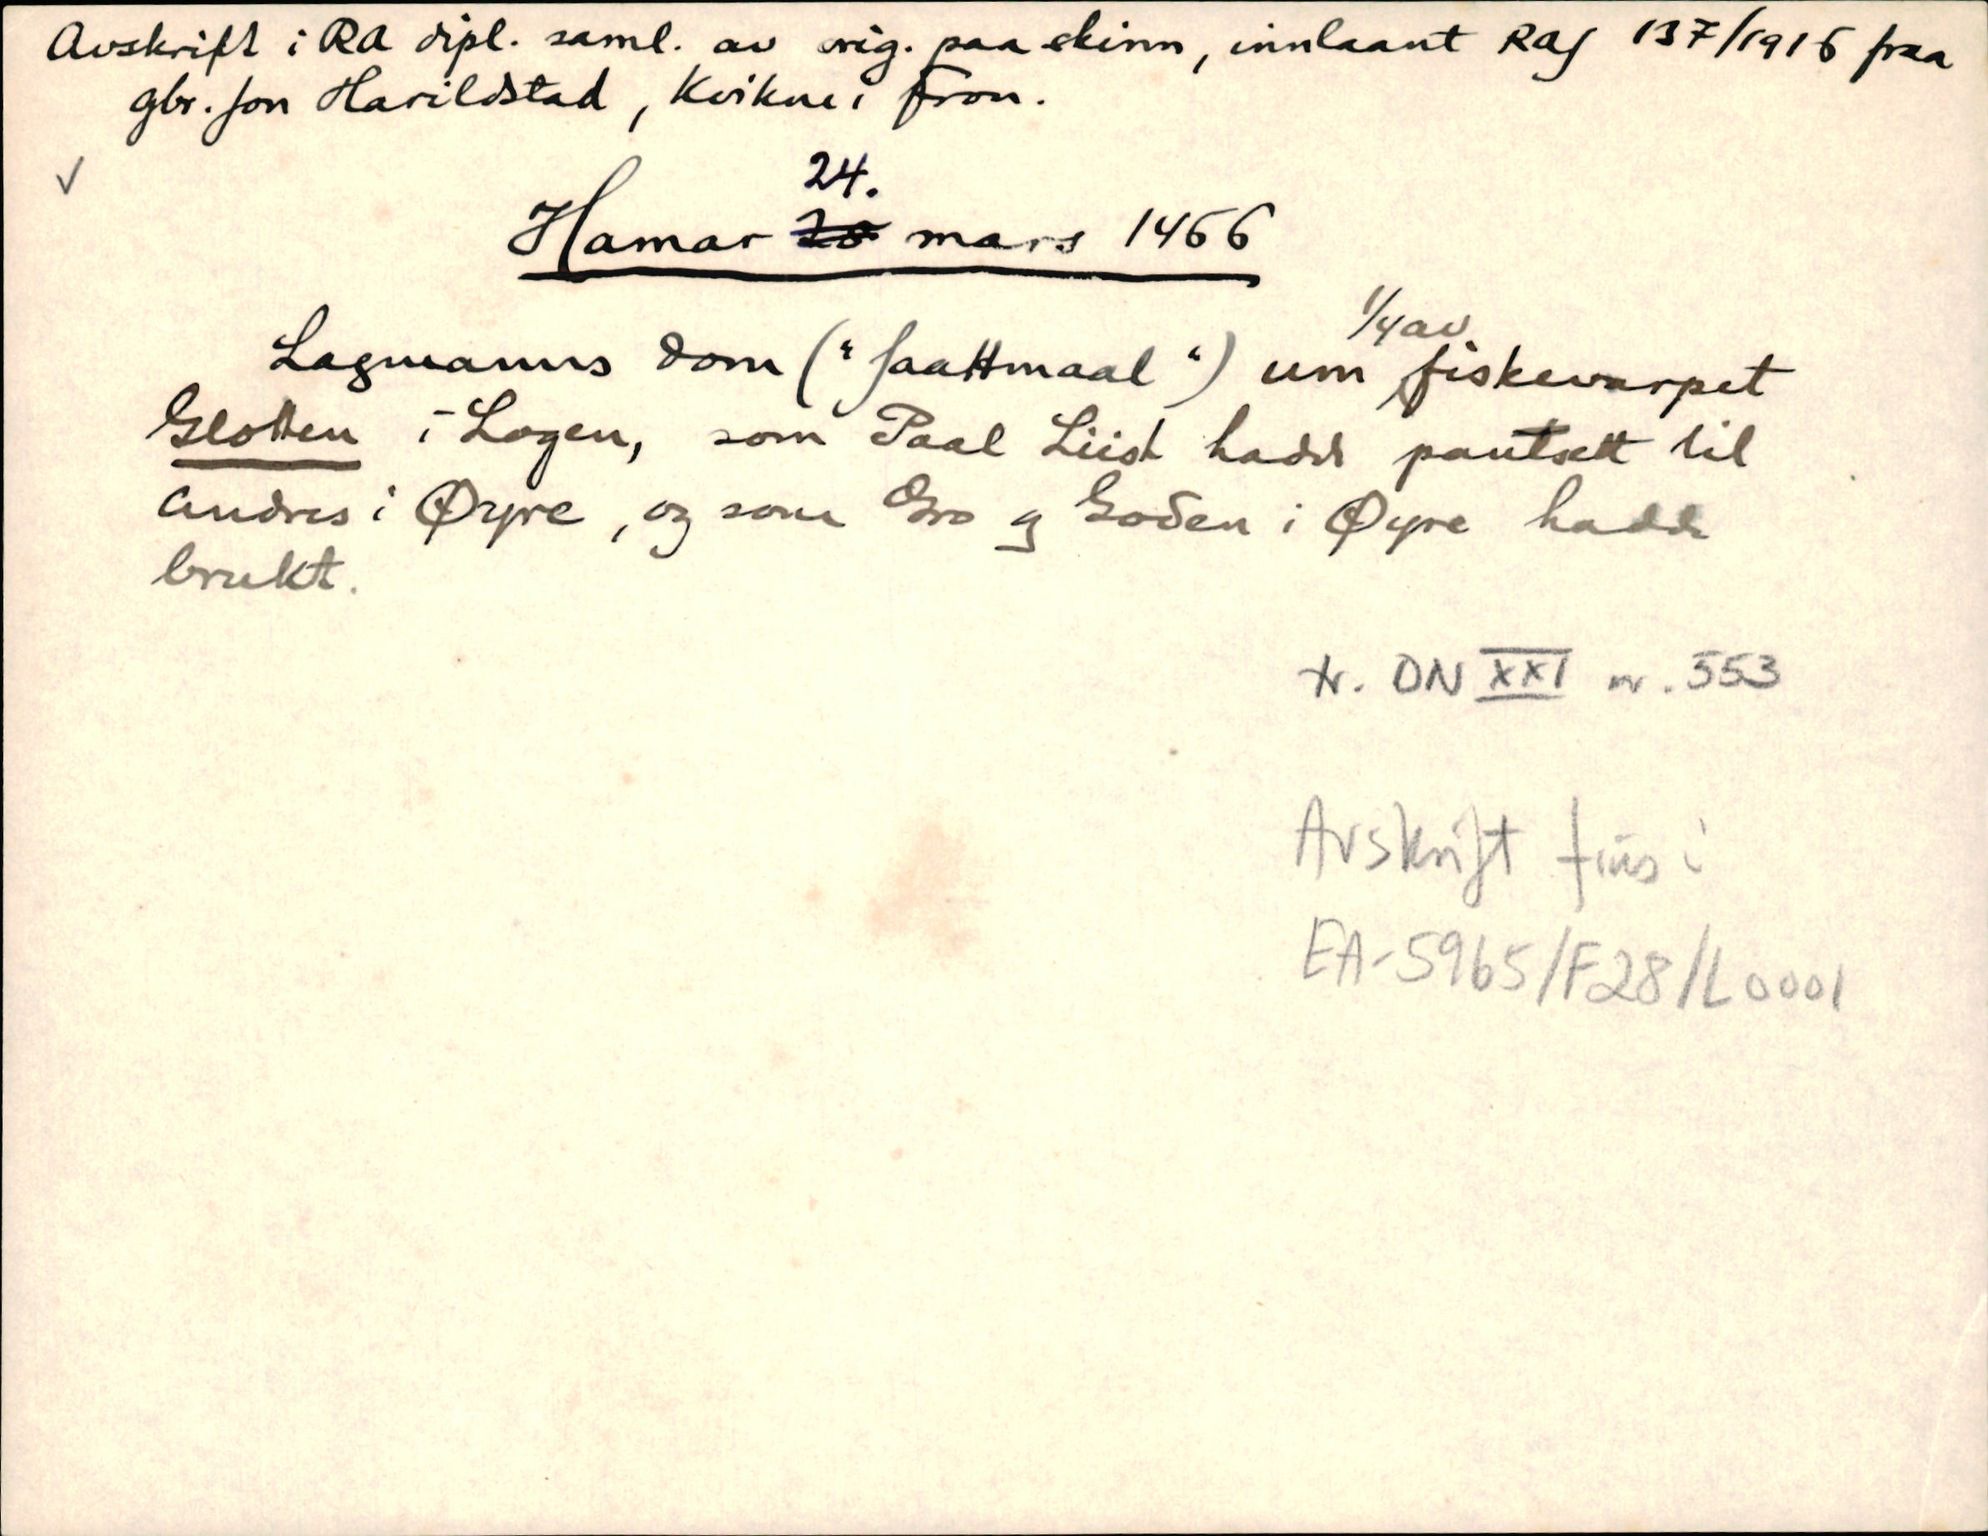 Avskrift i RA dipl. saml. av orig. paa skinn, innlaant RAJ 137/1916 fraa
gbr. Jon Harildstad, Kvikne i Fron.
✓
24.
Hamar 20 mars 1466
1/4 av
Lagmanns dom ("saattmaal") um fiskevarpet
Glotten i Logen, som Paal Liist hadde pantsett til
Andres i Øyre, og som Gro og Goden i Øyre hadde
brukt.
tr. DN XXI nr. 553
Avskrift fins i
EA-5965/F28/L0001